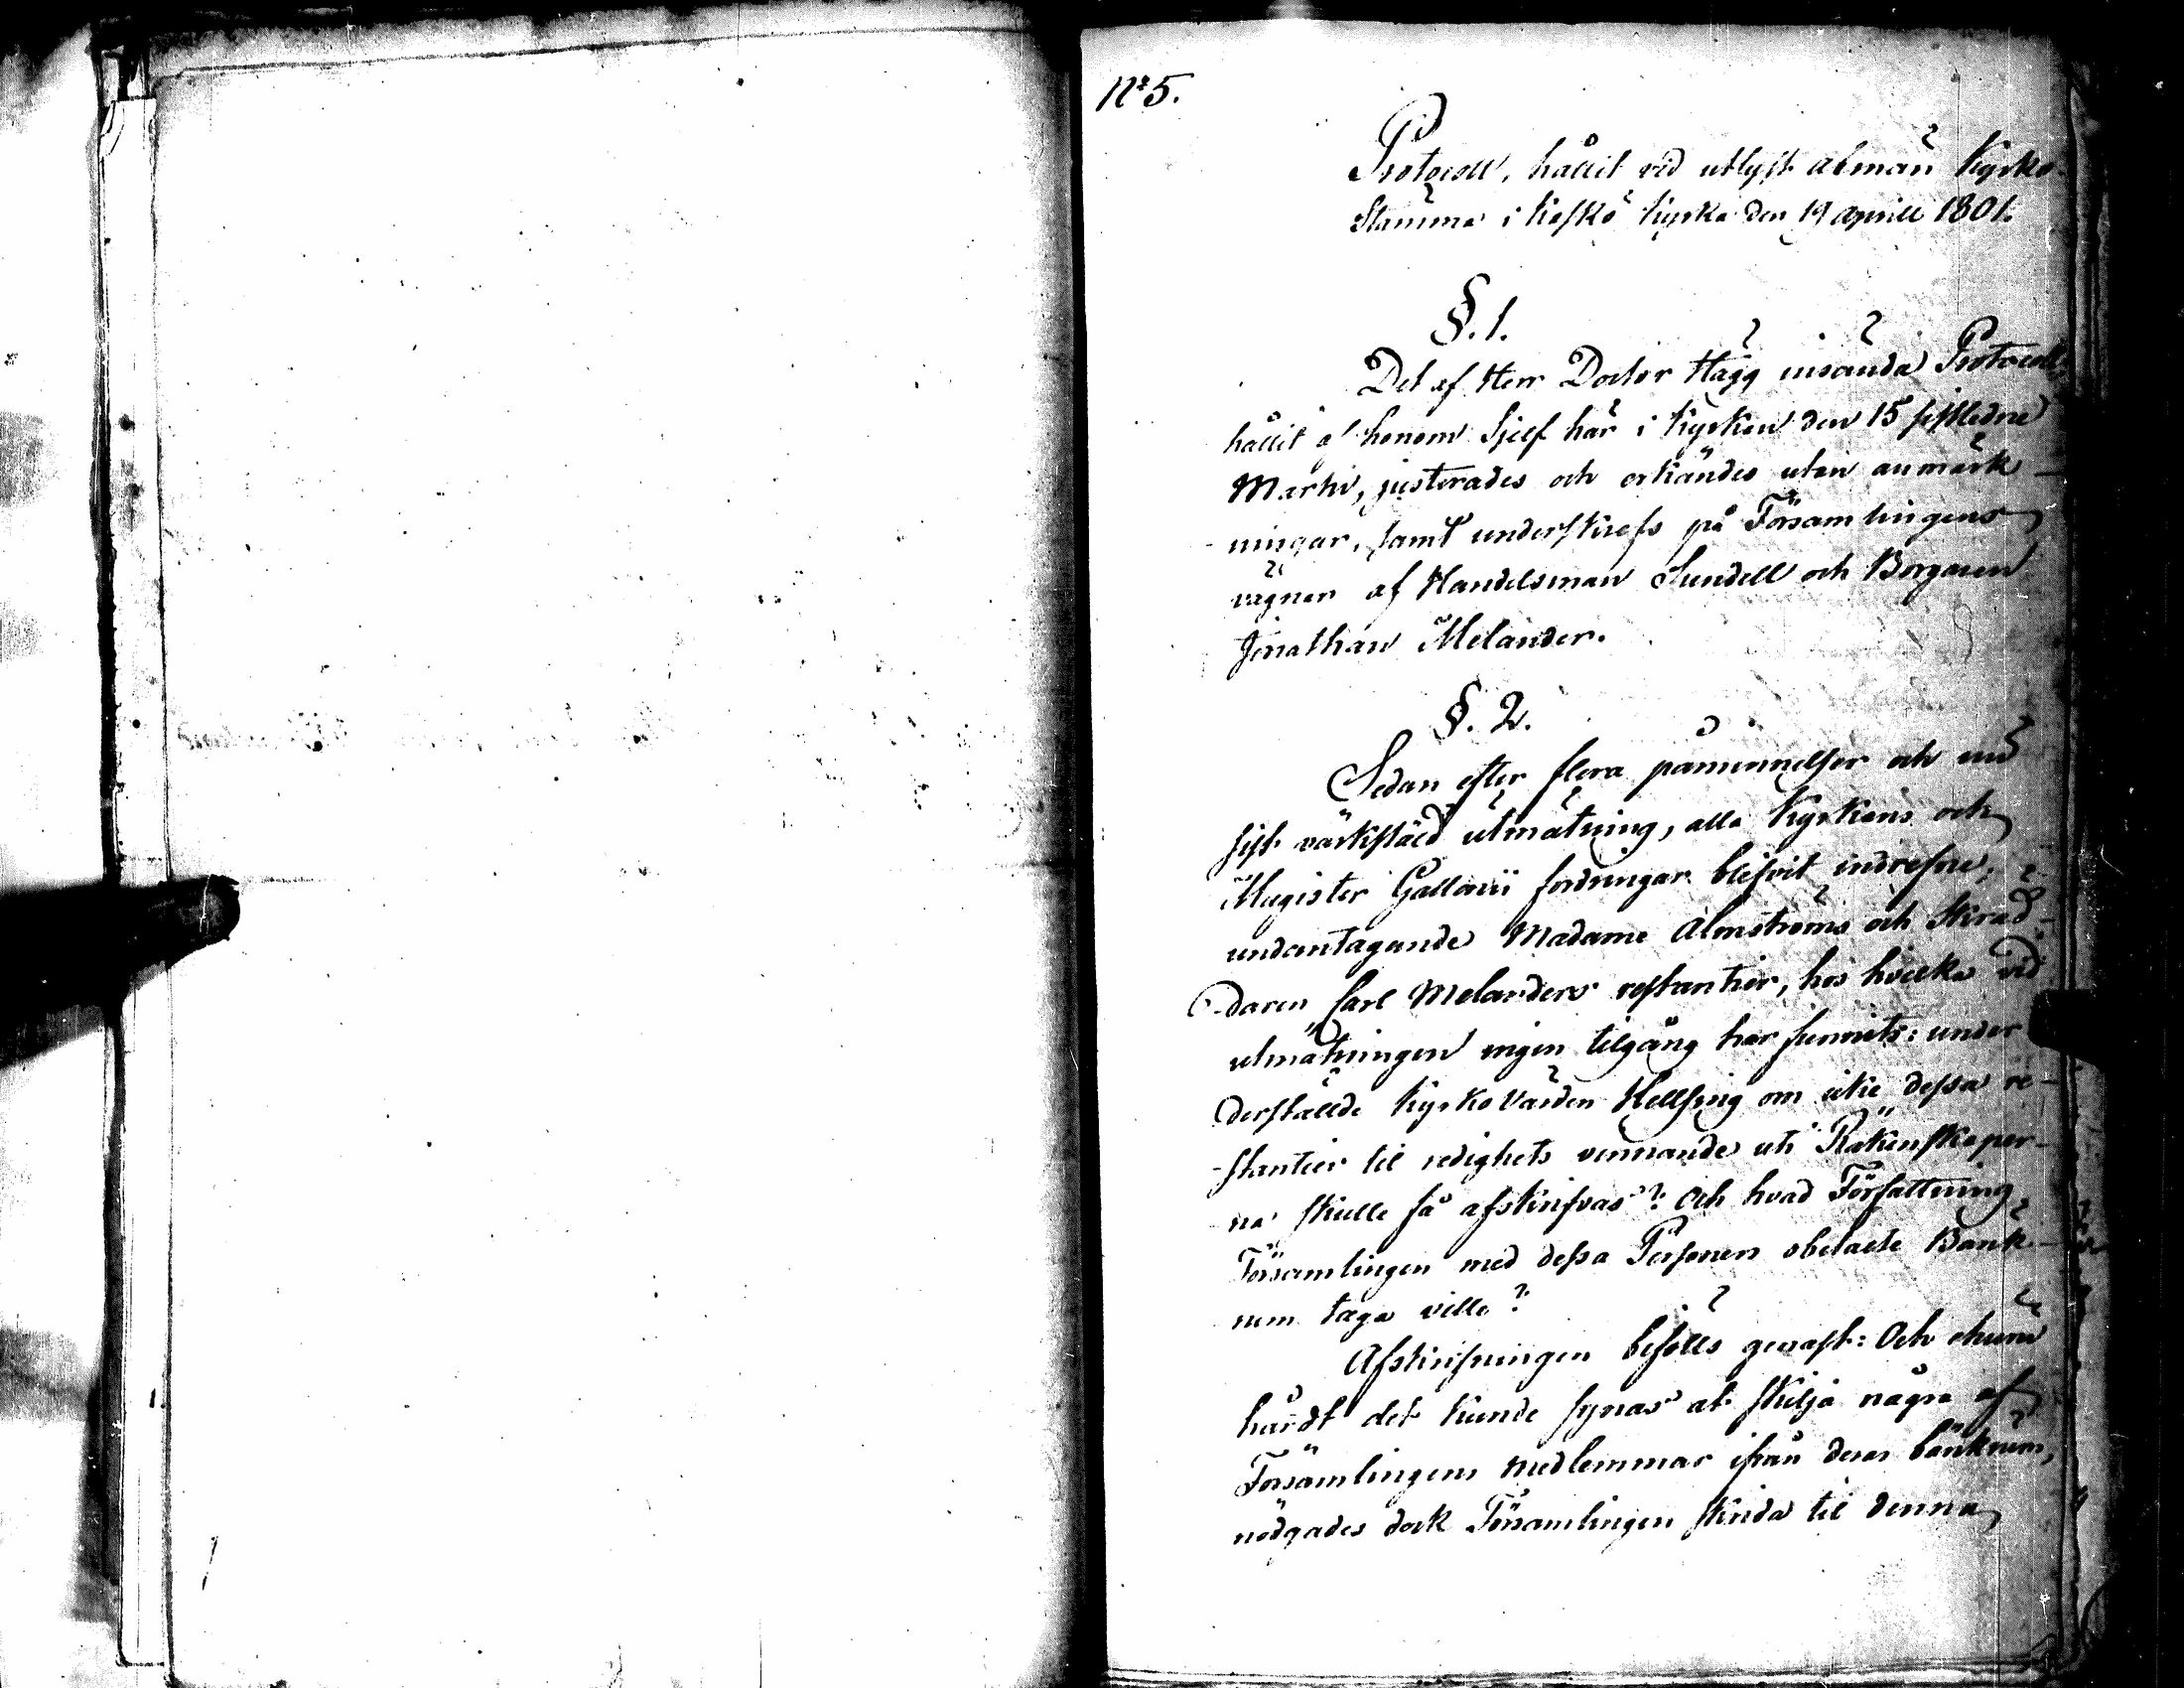 N:o 5.
Protocoll, hållit vid utlyst alman Kyrko-
Stamma i Kaskö Kyrka den 19 Aprill 1801.
§. 1.
Det af Herr Doctor Hägg insända Protocoll,
hållit af honom Sjelf här i Kyrkan den 15 sistledne
Martii, justerades och erkändes utan anmärk-
-ningar, samt underskrefs på Församlingens
vägnar af Handelsman Sundell och Borgaren
Jonathan Melander.
§. 2.
Sedan efter flera påminnelser och nu
sist värkstäld utmätning, alla Kyrkans och
Magister Gallonii fordringar blifvit indrefne,
undantagande Madame Almströms och Skräd-
-daren Carl Melanders restantier, hos hvilka vid
utmätningen ingen tilgång har funnits: under
derstälde Kyrko Värden Hellsing om icke dessa re-
-stantier til redighets vinnande uti Räkenskaper-
na skulle få afskrifvas? Och hvad Författning
Församlingen med dessa Personers obetalte Bänk-
rum taga ville?
Afskrifningen beföll genast: Och ehuru
hårdt det kunde synas at skilja några af
Församlingens medlemmar ifrån deras bänkrum,
nödgades dock Församlingen skrida til denna